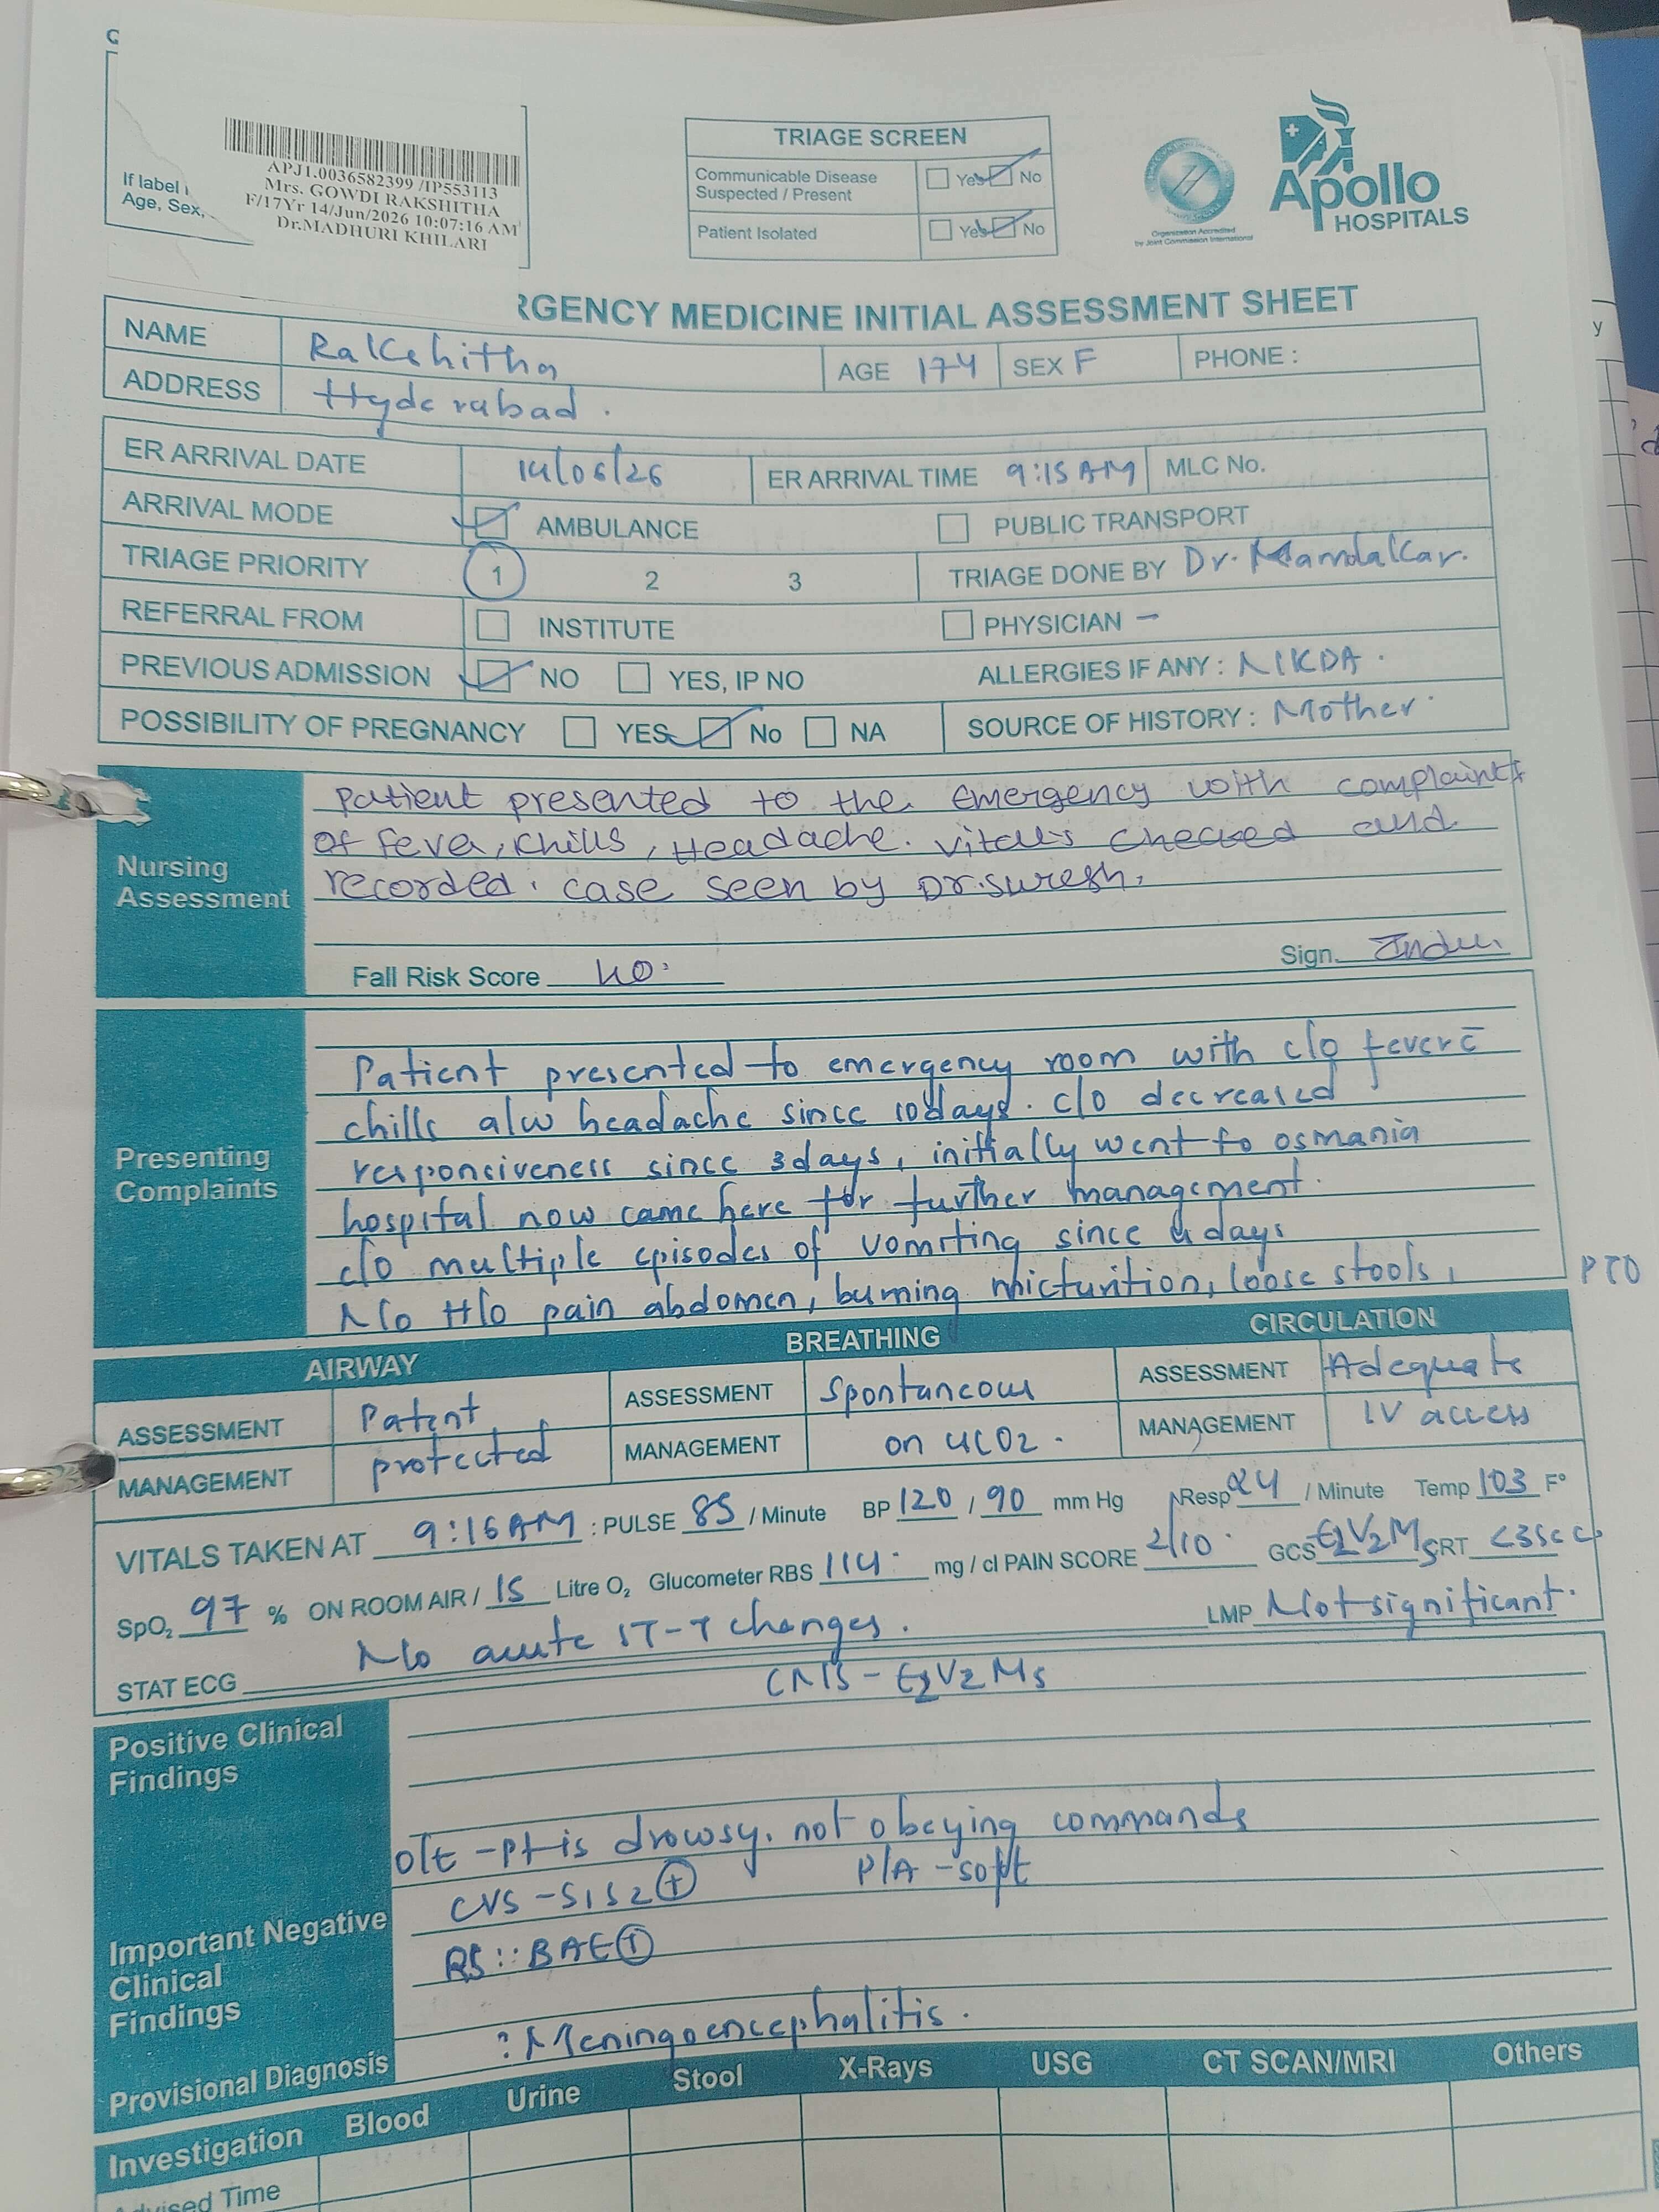 If label
Age, Sex,
APJ1.0036582399 /IP553113
Mrs. GOWDI RAKSHITHA
F/17Yr 14/Jun/2026 10:07:16 AM
Dr.MADHURI KHILARI
TRIAGE SCREEN
Communicable Disease Suspected / Present Yes No
Patient Isolated Yes No
Organization Accredited
by Joint Commission International
Apollo
HOSPITALS
RGENCY MEDICINE INITIAL ASSESSMENT SHEET
NAME Rakshitha AGE 17Y SEX F PHONE :
ADDRESS Hyderabad.
ER ARRIVAL DATE 14/06/26 ER ARRIVAL TIME 9:15 AM MLC No.
ARRIVAL MODE AMBULANCE PUBLIC TRANSPORT
TRIAGE PRIORITY 1 2 3 TRIAGE DONE BY Dr.
REFERRAL FROM INSTITUTE PHYSICIAN –
PREVIOUS ADMISSION NO YES, IP NO ALLERGIES IF ANY : NKDA.
POSSIBILITY OF PREGNANCY YES No NA SOURCE OF HISTORY : Mother.
Nursing Assessment
Patient presented to the Emergency with complaints
of fever, chills, Headache. vitals checked and
recorded. case seen by Dr. Suresh.
Fall Risk Score Sign. Indu
Presenting Complaints
Patient presented to emergency room with c/o fever c̄
chills a/w headache since 10days. c/o decreased
responsiveness since 3days, initially went to osmania
hospital now came here for further management.
c/o multiple episodes of vomiting since 4 days
No H/o pain abdomen, burning micturition, loose stools,
PTO
AIRWAY BREATHING CIRCULATION
ASSESSMENT Patent ASSESSMENT Spontaneous ASSESSMENT Adequate
MANAGEMENT protected MANAGEMENT on MANAGEMENT IV access
VITALS TAKEN AT 9:16AM : PULSE 85 / Minute BP 120 / 90 mm Hg Resp 24 / Minute Temp 103 F°
SpO2 97 % ON ROOM AIR / 15 Litre O2 Glucometer RBS 114 mg / cl PAIN SCORE 2/10 GCS CRT <3sec
STAT ECG No acute ST-T changes. LMP Not significant.
Positive Clinical Findings
CNS - E2V2M5
O/E - pt is drowsy, not obeying commands
Important Negative Clinical Findings
CVS - S1S2 ⊕ P/A - soft
RS :: BAE ⊕
Provisional Diagnosis ? Meningoencephalitis.
Investigation Blood Urine Stool X-Rays USG CT SCAN/MRI Others
Advised Time